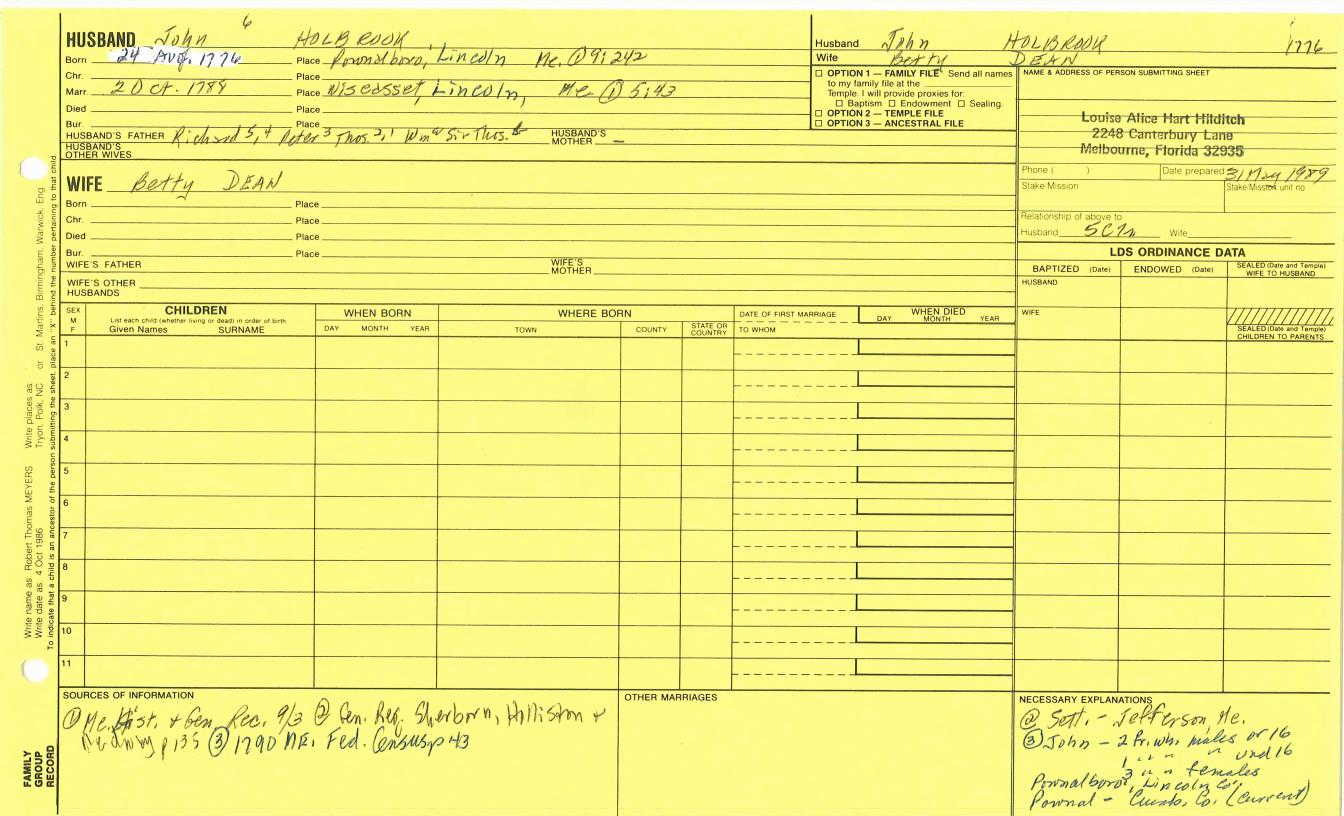 HUSBAND John 6 HOLBROOK
Born 24 Aug. 1776 Place Pownalboro, Lincoln Me. ① 9; 242
Chr. Place
Marr. 2 Oct. 1789 Place Wiscasset, Lincoln, Me ① 5; 43
Died Place
Bur. Place
HUSBAND'S FATHER Richard 5,4 Peter 3 Thos. 2,1 Wm Sir Thos. HUSBAND'S MOTHER –
HUSBAND'S OTHER WIVES
WIFE Betty DEAN
Born Place
Chr. Place
Died Place
Bur. Place
WIFE'S FATHER WIFE'S MOTHER
WIFE'S OTHER HUSBANDS
Husband John HOLBROOK 1776
Wife Betty DEAN
☐ OPTION 1 — FAMILY FILE Send all names
to my family file at the
Temple. I will provide proxies for:
☐ Baptism ☐ Endowment ☐ Sealing.
☐ OPTION 2 — TEMPLE FILE
☐ OPTION 3 — ANCESTRAL FILE
NAME & ADDRESS OF PERSON SUBMITTING SHEET
Louise Alice Hart Hilditch
2248 Canterbury Lane
Melbourne, Florida 32935
Phone ( ) Date prepared 31 May 1989
Stake Mission Stake Mission unit no
Relationship of above to
Husband 5C7n Wife
LDS ORDINANCE DATA
BAPTIZED (Date) ENDOWED (Date) SEALED (Date and Temple) WIFE TO HUSBAND
HUSBAND
WIFE
SEALED (Date and Temple) CHILDREN TO PARENTS
SEX M F
CHILDREN
List each child (whether living or dead) in order of birth
Given Names SURNAME
WHEN BORN
DAY MONTH YEAR
WHERE BORN
TOWN COUNTY STATE OR COUNTRY
DATE OF FIRST MARRIAGE
TO WHOM
WHEN DIED
DAY MONTH YEAR
1
2
3
4
5
6
7
8
9
10
11
SOURCES OF INFORMATION
① Me. Hist. & Gen. Rec. 9/3 ② Gen. Reg. Sherborn, Holliston &
p 135 ③ 1790 ME. Fed. Census p 43
OTHER MARRIAGES
NECESSARY EXPLANATIONS
② Sett. – Jefferson, Me.
③ John – 2 fr. wh. males or 16
1 " " " und 16
3 " " females
Pownalboro, Lincoln Co.
Pownal – Cumb. Co. (current)
Write name as: Robert Thomas MEYERS Write places as: Tryon, Polk, NC or St. Martins, Birmingham, Warwick, Eng
Write date as: 4 Oct 1986
To indicate that a child is an ancestor of the person submitting the sheet, place an "X" behind the number pertaining to that child.
FAMILY
GROUP
RECORD